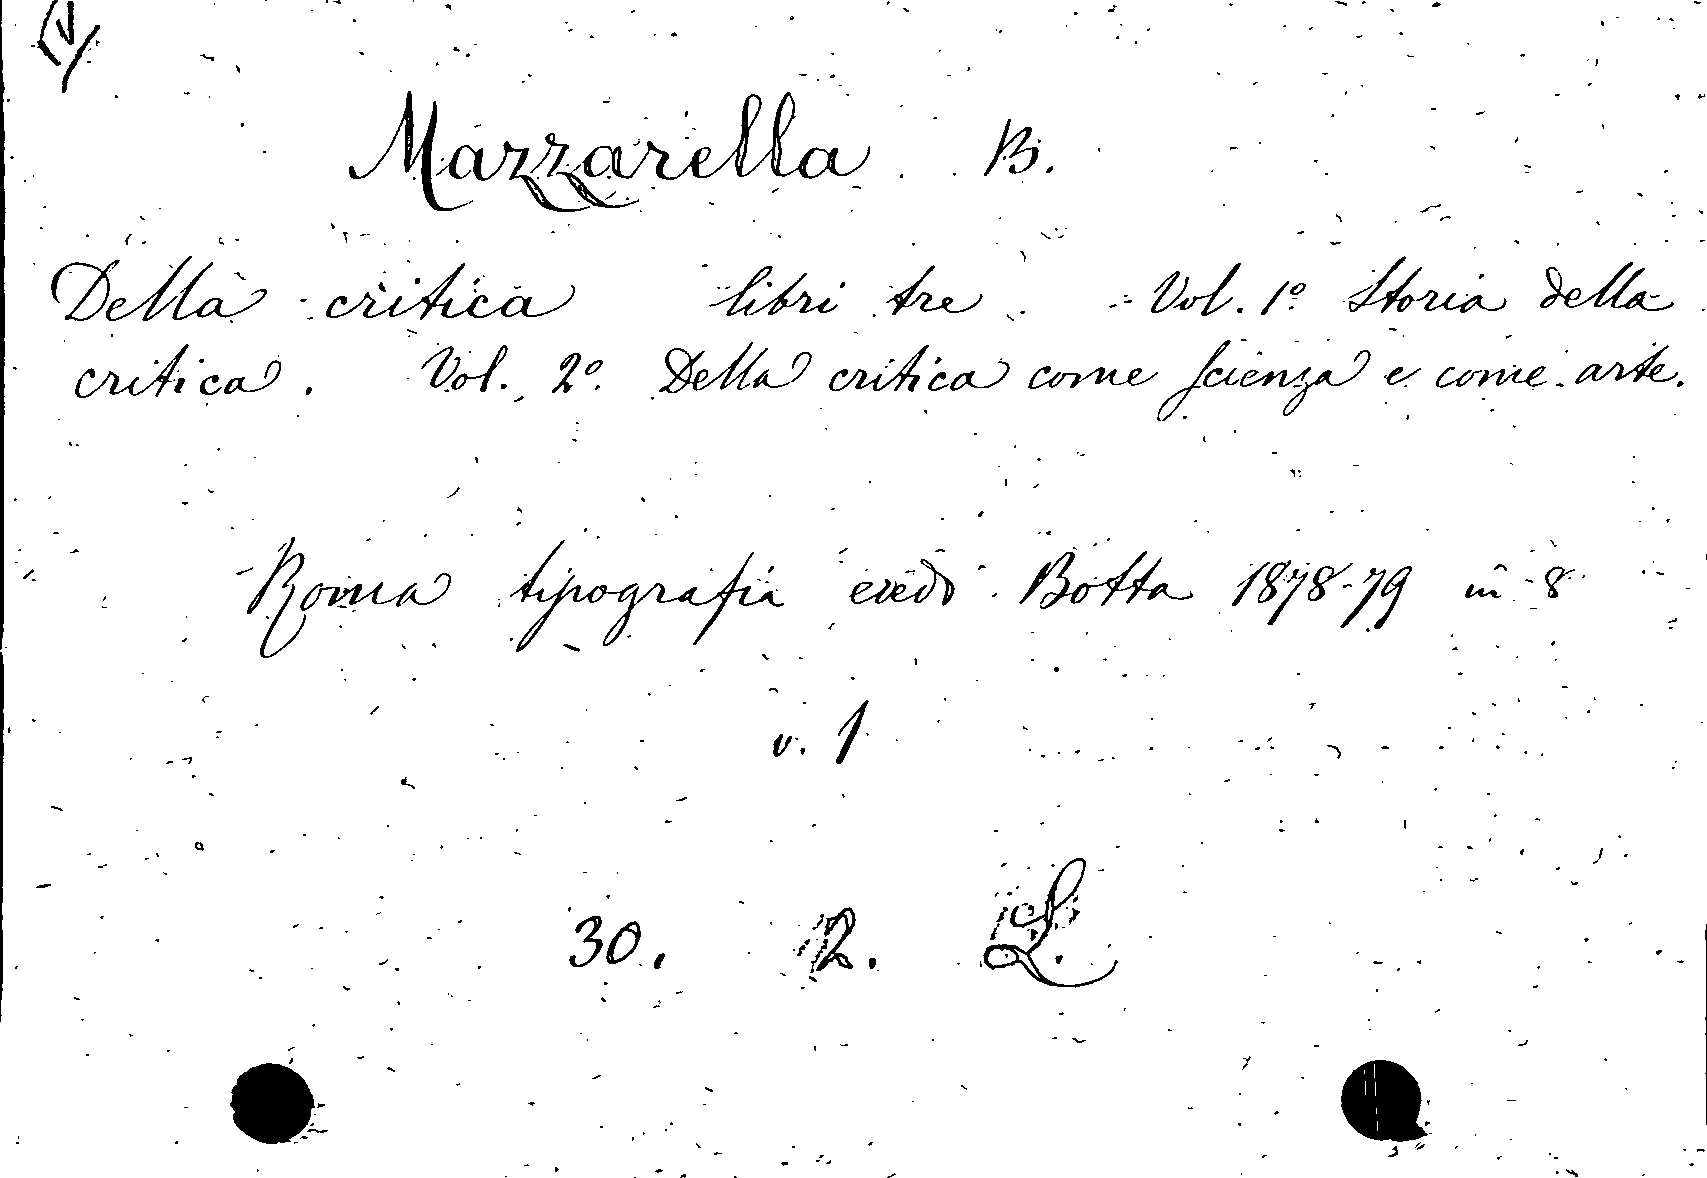 Mazzarella B.
Della critica libri tre Vol. 1º Storia della
critica. Vol. 2º. Della critica come scienza e come arte.
Roma tipografia eredi Botta 1878-79 in 8
v. 1
30. 12. L.